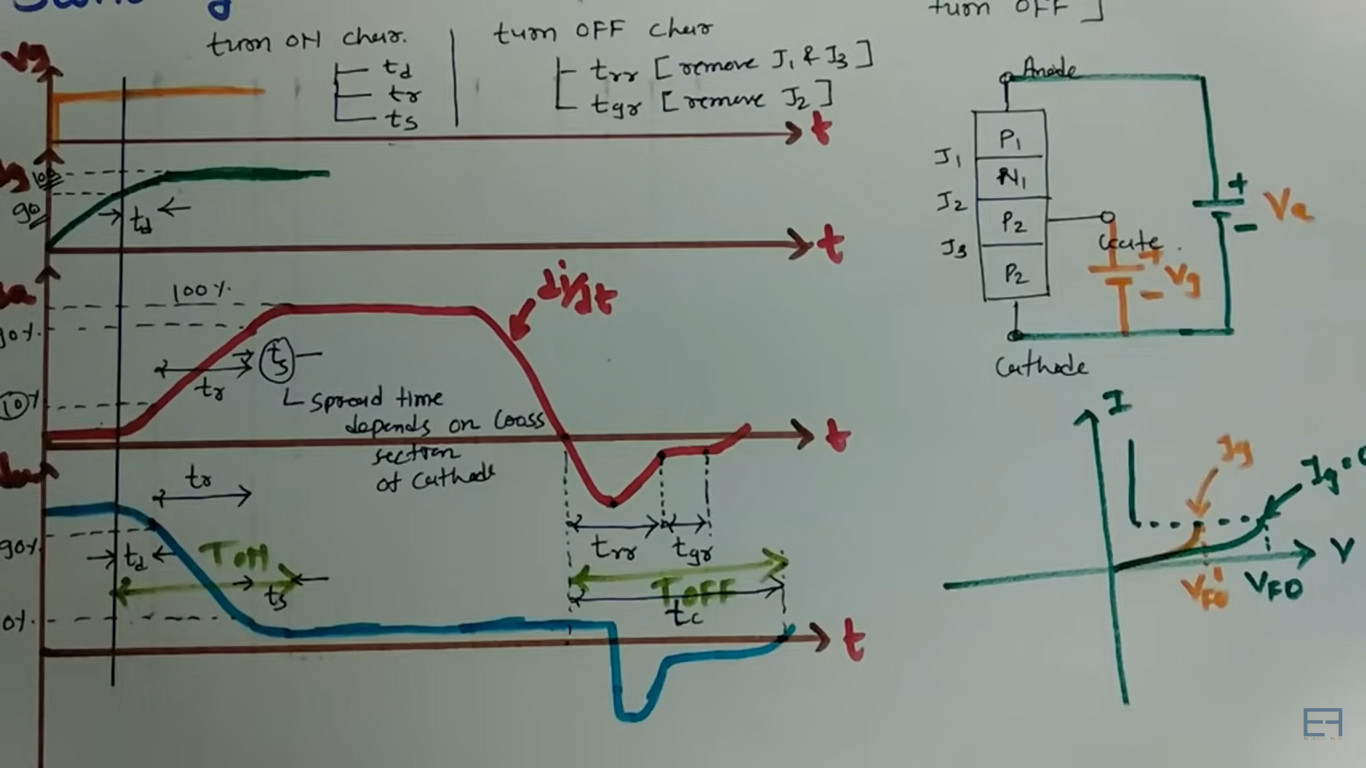 turn OFF ]
turn ON char.
td
tr
ts
turn OFF char
trr [remove J1 & J3]
tgr [remove J2]
Vg
t
100
90
td
t
di/dt
100%
90%
10%
tr
ts
Spread time
depends on Coass
section
of Cathode
t
tr
90%
td
TON
ts
0%
trr
tgr
TOFF
tc
t
Anode
J1
P1
N1
J2
P2
J3
P2
Gate
+
-
Vg
+
-
Va
Cathode
I
Ig
Ig=0
V
VFO'
VFO
EF